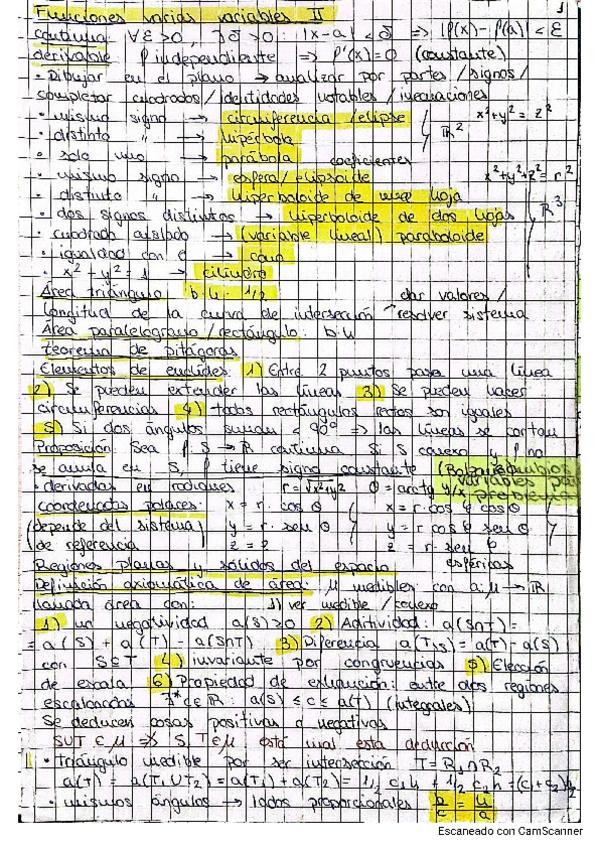 Funciones varias variables II 1
continua: ∀ε>0, ∃δ>0: |x-a|<δ => |f(x)-f(a)|<ε
derivable f independiente => f'(x)=0 (constante)
· Dibujar en el plano → analizar por partes /signos/
completar cuadrados/identidades notables/inecuaciones
· mismo signo → circunferencia/elipse x²+y²=z²
· distinto " → hipérbola ℝ²
· solo uno → parábola coeficientes
· mismo signo → esfera/elipsoide x²+y²+z²=r²
· distinto " → hiperboloide de una hoja
· dos signos distintos → hiperboloide de dos hojas ℝ³
· cuadrado aislado → (variable lineal) paraboloide
· igualdad con 0 → cono
· x²+y²=1 → cilindro
Área triángulo: b·h·1/2 dar valores/
longitud de la curva de intersección resolver sistema
Área paralelogramo/rectángulo: b·h
teorema de pitágoras
Elementos de euclides: 1) Entre 2 puntos pasa una línea
2) Se pueden extender las líneas 3) Se pueden hacer
circunferencias 4) todos rectángulos rectos son iguales
5) Si dos ángulos suman < 90° => las líneas se cortan
Proposición: Sea f: S→ℝ continua Si S conexo y f no
se anula en S, f tiene signo constante (Bolzano) cambios
variables para
· derivadas en radianes r=√x²+y² θ=arctg y/x problema
coordenadas polares: x=r·cos θ x=r·cos φ cos θ
(depende del sistema y=r·sen θ y=r cos φ sen θ
de referencia) z=z z=r·sen φ
Regiones planas y sólidos del espacio esféricas
Definición axiomática de área: μ medibles con a:μ→ℝ
llamada área con: 1) ver medible / conexo
1) no negatividad a(S)≥0 2) Aditividad: a(S∩T)=
=a(S)+a(T)-a(S∩T) 3) Diferencia a(T\S)=a(T)-a(S)
con S⊆T 4) invariante por congruencias 5) Elección
de escala 6) Propiedad de exhaución: entre dos regiones
escalonadas ∃*c∈ℝ: a(S)≤c≤a(T) (integrales)
Se deducen cosas positivas o negativas
SUT∈μ ≠> S,T∈μ está mal esta deducción
· Triángulo medible por ser intersección T=R₁∩R₂
a(T)=a(T₁∪T₂)=a(T₁)+a(T₂)=1/2 c₁h+1/2 c₂h=(c₁+c₂)h/2
· mismos ángulos → lados proporcionales b/c = h/a
Escaneado con CamScanner